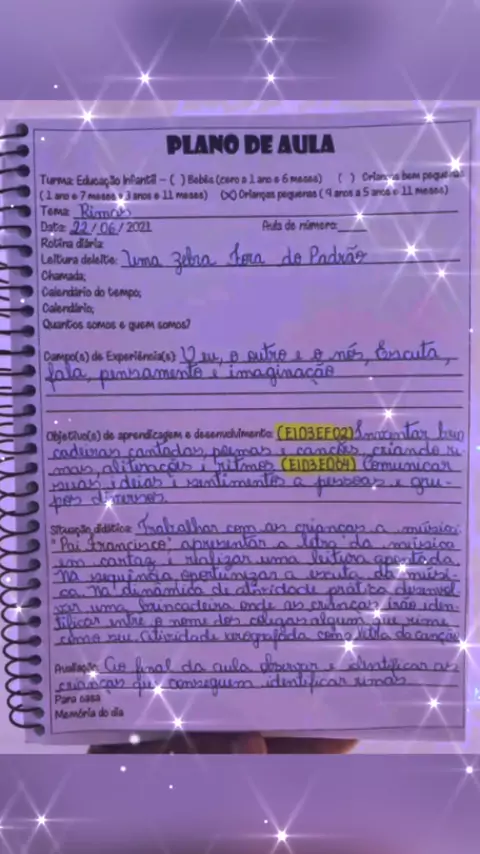 PLANO DE AULA
Turma: Educação Infantil – ( ) Bebês (zero a 1 ano e 6 meses) ( ) Crianças bem pequenas
( 1 ano e 7 meses a 3 anos e 11 meses) (X) Crianças pequenas ( 4 anos a 5 anos e 11 meses)
Tema: Rimas
Data: 22/06/2021 Aula de número:
Rotina diária:
Leitura deleite: Uma zebra fora do Padrão
Chamada;
Calendário do tempo;
Calendário;
Quantos somos e quem somos?
Campo(s) de Experiência(s): O eu, o outro e o nós, Escuta,
fala, pensamento e imaginação
Objetivo(s) de aprendizagem e desenvolvimento: (EI03EF02) Inventar brin
cadeiras cantadas, poemas e canções, criando ri
mas, aliterações e ritmos (EI03EO04) Comunicar
suas ideias e sentimentos a pessoas e gru-
pos diversos.
Situação didática: Trabalhar com as crianças a música:
"Pai Francisco", apresentar a letra da música
em cartaz e realizar uma leitura apontada.
Na sequência oportunizar a escuta da músi-
ca. Na dinâmica de atividade prática desenvol-
ver uma brincadeira onde as crianças irão iden-
tificar entre o nome dos colegas algum que rime
com o seu. Atividade xerografada com letra da canção
Avaliação: Ao final da aula observar e identificar as
crianças que conseguem identificar rimas.
Para casa
Memória do dia